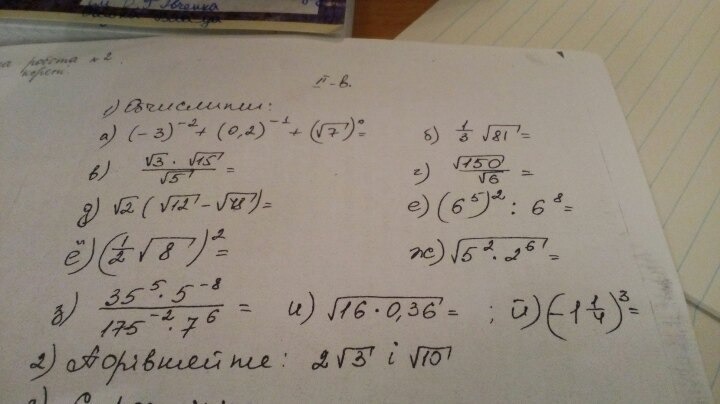 на робота №2
II-в.
1) Обчислити:
а) (-3)⁻² + (0,2)⁻¹ + (√7)⁰= б) 1/3 √81 =
в) (√3 · √15)/√5 = г) √150/√6 =
д) √2 (√12 - √48)= е) (6⁵)² : 6⁸=
ё) (1/2 √8)²= ж) √(5² · 2⁶) =
з) (35⁵ · 5⁻⁸)/(175⁻² · 7⁶) = и) √(16 · 0,36) = ; й) (-1 1/4)³=
2) Порівняйте: 2√3 і √10